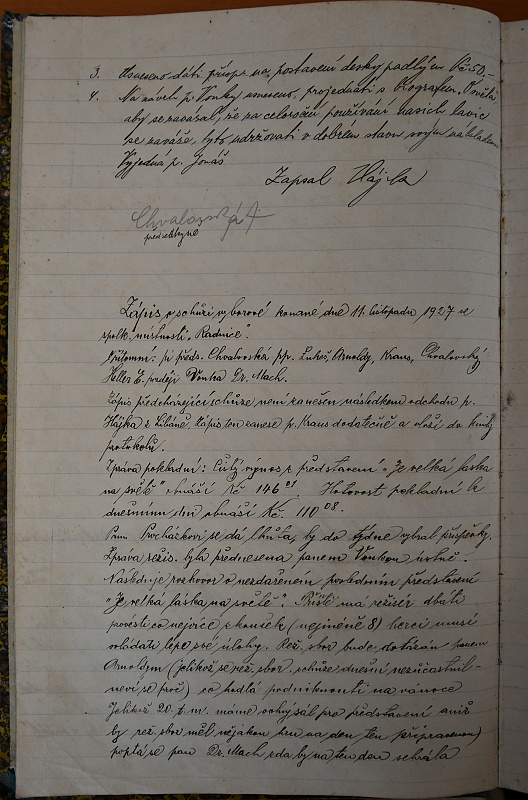 3. Usneseno dáti příspěvek na postavení desky padlým Kč 50,-
4. Na návrh p. Vonky usneseno, projednati s biografem „Světla"
aby se zavázal, že za celoroční používání našich lavic
se zaváže, tyto udržovati v dobrém stavu svým nákladem
Vyjedná p. Jonáš
Zapsal Hájek
Chvalovská A
předsedkyně
Zápis o schůzi výborové konané dne 11. listopadu 1927 ve
spolk. místnosti „Radnice".
Přítomni: pí předs. Chvalovská pp. Lukeš, Arnoldy, Kraus, Chvalovský
Heller E. později Vonka Dr. Mach.
Zápis předcházející schůze není zanešen následkem odchodu p.
Hájka z Libáně. Zápis ten zanese p. Kraus dodatečně a vloží do knihy
protokolů.
Zpráva pokladní: Čistý výnos z představení „Je velká láska
na světě" obnáší Kč 146 Hotovost pokladní k
dnešnímu dni obnáší Kč. 110 08.
Panu Procházkovi se dá lhůta, by do týdne vybral příspěvky.
Zpráva režis. byla přednesena panem Vonkou ústně.
Následuje rozhovor o nezdařeném posledním představení
„Je velká láska na světě". Příště má režisér dbáti
povésti co nejvíce zkoušek (nejméně 8) herci musí
ovládati lépe své úlohy. Rež. sbor bude dotázán panem
Arnoldym (jelikož se rež. sbor schůze dnešní nezúčastnil-
neví se proč) co hodlá podniknouti na vánoce
Jelikož 20. t. m. máme volný sál pro představení aniž
by rež. sbor měl nějakou hru na den ten připravenou)
poptá se pan Dr. Mach zda by na ten den sehrála